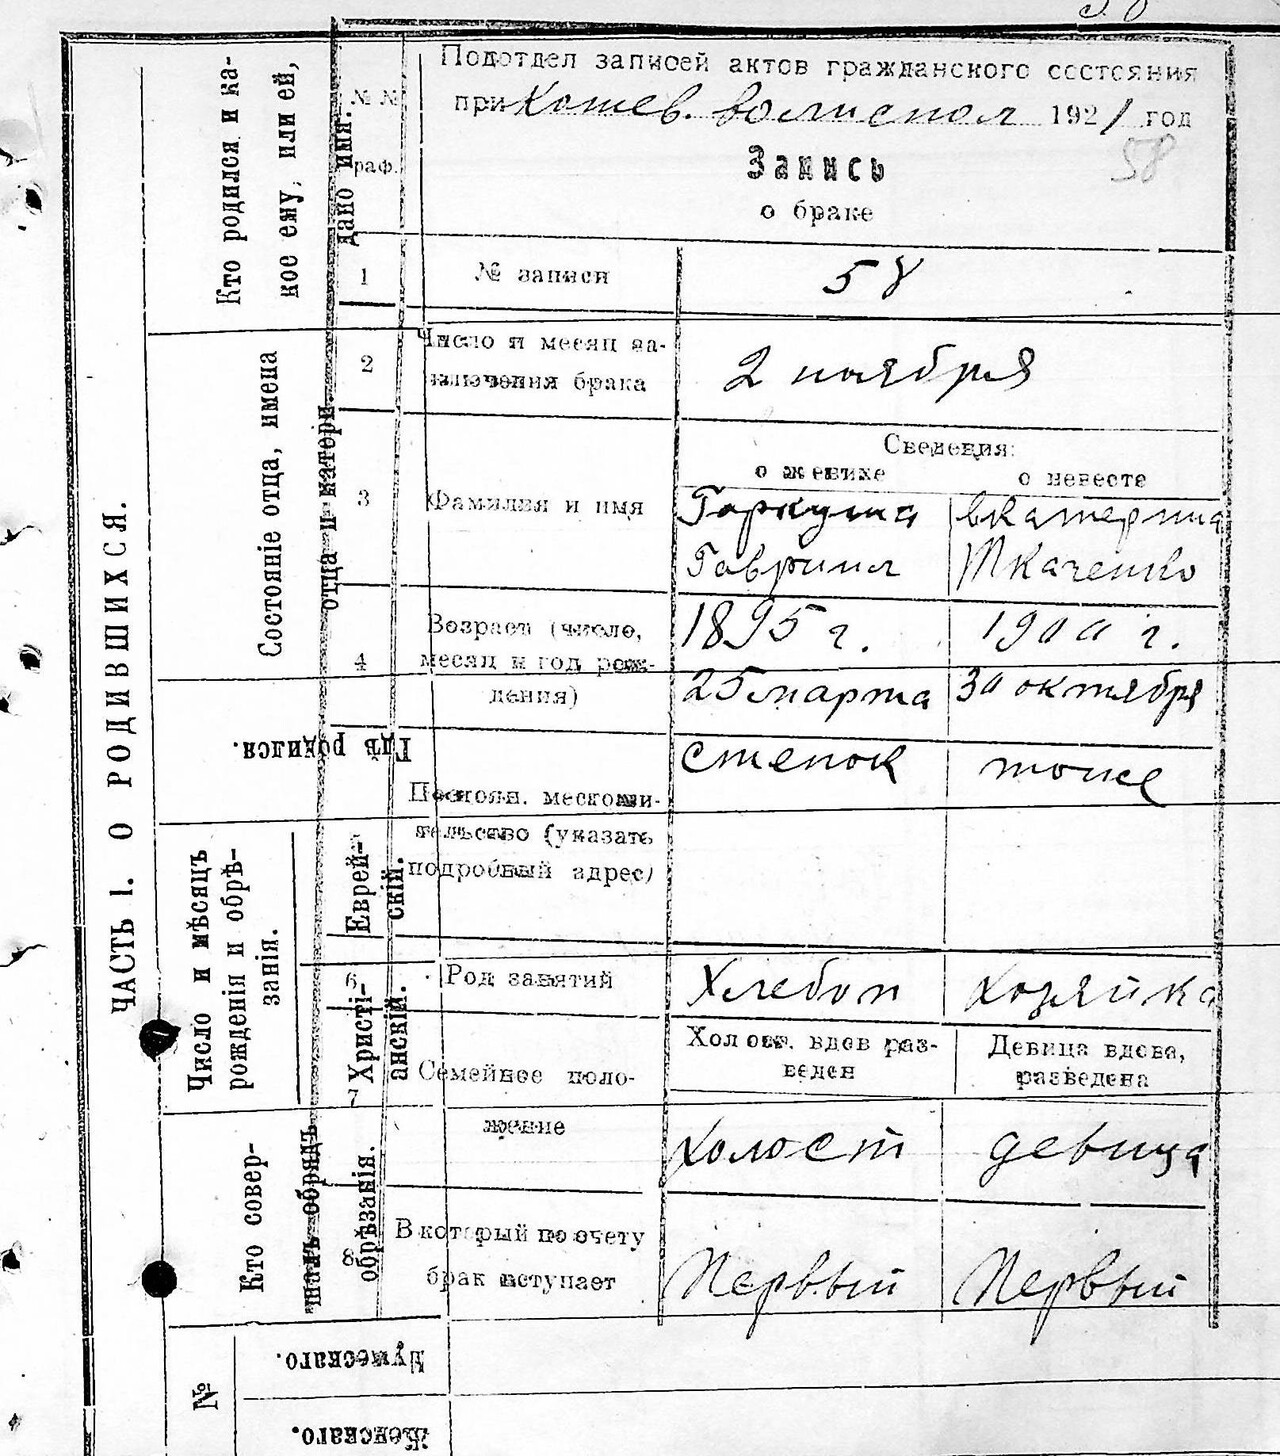 58
Подотдел записей актов гражданского состояния
при Кошев. волиспол 1921 год
Запись
58
о браке
№ №
граф.
1 № записи 58
2 Число и месяц за-
ключения брака 2 ноября
Сведения:
о женихе о невесте
3 Фамилия и имя Гаркуша Екатерина
Гавриил Ткаченко
4 Возраст (число,
месяц и год рож-
дения)
1895 г. 1900 г.
25 марта 30 октября
Постоян. местожи-
тельство (указать
подробный адрес)
степок тоже
6 Род занятий Хлебоп хозяйка
7 Семейное поло-
жение
Холост. вдов раз-
веден
Девица вдова,
разведена
холост девица
8 В который по счету
брак вступает Первый Первый
ЧАСТЬ I. О РОДИВШИХСЯ.
Кто родился и ка-
кое ему, или ей,
дано имя.
Состояніе отца, имена
отца и матери
Гдѣ родился.
Число и мѣсяцъ
рожденія и обрѣ-
занія.
Еврей-
скій.
Христі-
анскій.
Кто совер-
шалъ обрядъ
обрѣзанія.
№
Мужескаго.
Женскаго.